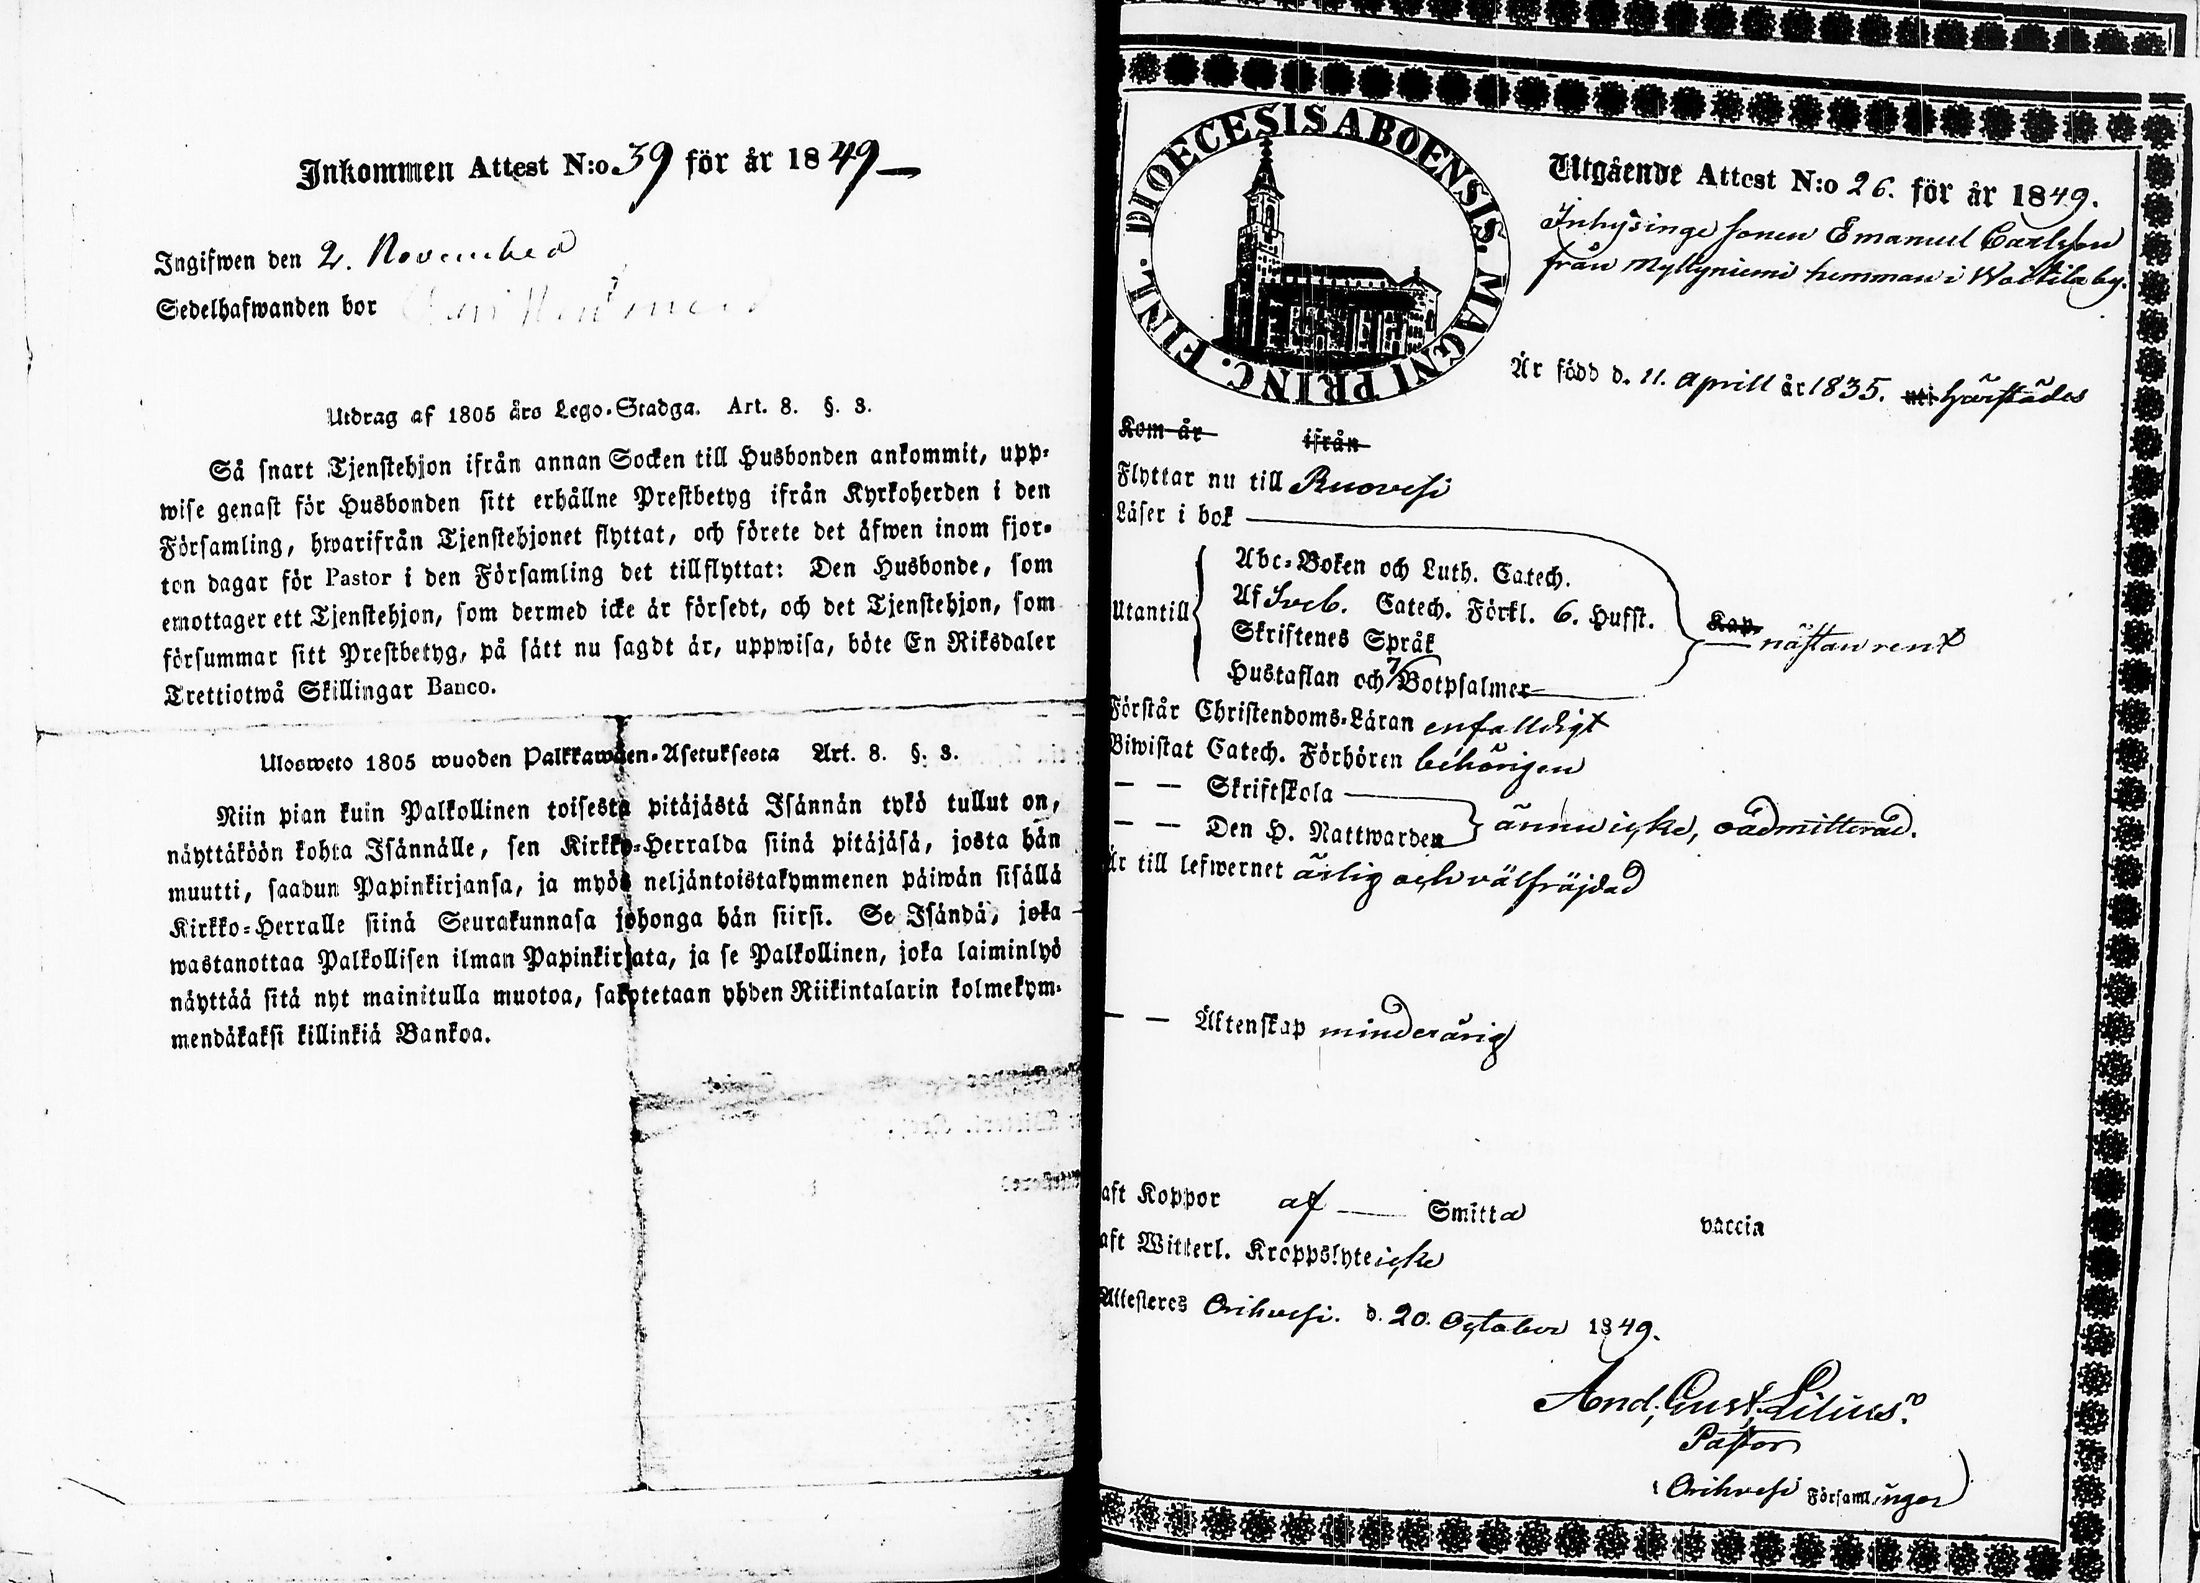 Inkommen Attest N:o 39 för år 1849
Ingifwen den 2. November
Sedelhafwanden bor
Utdrag af 1805 års Lego-Stadga. Art. 8. §. 3.
Så snart Tjenstehjon ifrån annan Socken till Husbonden ankommit, upp-
wise genast för Husbonden sitt erhållne Prestbetyg ifrån Kyrkoherden i den
Församling, hwarifrån Tjenstehjonet flyttat, och förete det äfwen inom fjor-
ton dagar för Pastor i den Församling det tillflyttat: Den Husbonde, som
emottager ett Tjenstehjon, som dermed icke är försedt, och det Tjenstehjon, som
försummar sitt Prestbetyg, på sätt nu sagdt är, uppwisa, böte En Riksdaler
Trettiotwå Skillingar Banco.
Ulosweto 1805 wuoden Palkkawäen-Asetuksesta Art. 8. §. 3.
Niin pian kuin Palkollinen toisesta pitäjästä Isännän tykö tullut on,
näyttäköön kohta Isännälle, sen Kirkko-Herralda siinä pitäjäsä, josta hän
muutti, saadun Papinkirjansa, ja myös neljäntoistakymmenen päiwän sisällä
Kirkko-Herralle siinä Seurakunnasa johonga hän siirsi. Se Isändä, joka
wastanottaa Palkollisen ilman Papinkirjata, ja se Palkollinen, joka laiminlyö
näyttää sitä nyt mainitulla muotoa, sakotetaan yhden Riikintalarin kolmekym-
mendäkaksi killinkiä Bankoa.
DIOECESIS ABOENSIS. MAGNI PRINC. FINL.
Utgående Attest N:o 26. för år 1849.
Inhysinge sonen Emanuel Carlsson
från Myllyniemi hemman i Woitila by.
Är född d. 11. Aprill år 1835. uti härstädes
Kom år ifrån
Flyttar nu till Ruovesi
Läser i bok
Utantill
Abc-Boken och Luth. Catech.
Af Sveb. Catech. Förkl. 6. Hufst.
Skriftenes Språk
Hustaflan och 7 Botpsalmer
Kap. nästan rent
Förstår Christendoms-Läran enfalldigt
Biwistat Catech. Förhören behörigen
— — Skriftskola
— — Den H. Nattwarden
ännu icke, oadmitterad.
Är till lefwernet ärlig och välfräjdad
— — Äktenskap minderårig
aft Koppor af — Smitta vaccia
aft Witterl. Kroppslyte icke
Attesteres Orihvesi. d. 20. October 1849.
And. Gust. Lilius.
Pastor
i Orihvesi Församlingar